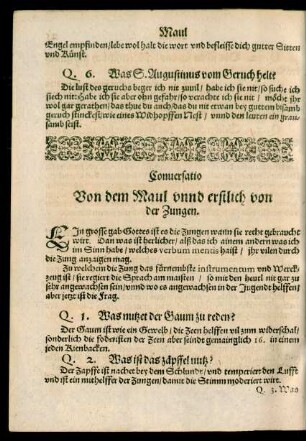 Maul
Engel empfinden/lebe wol halt die wort vnd befleisse dich gutter Sitten
vnd Künst.
Q. 6. Was S. Augustinus vom Geruch helt?
Die lust des geruchs beger ich nit zuuil/ habe ich sie nit/so suche ich
siech nit/habe ich sie aber ohn gefahr/so verachte ich sie nit/ möchte ihr
wol gar gerathen/das thue du auch/das du nit etwan bey guttem bisumb
geruch stinckest/wie eines Widhopffen Nest/ vnnd den leuten ein grau-
samb seist.
Conuersatio
Von dem Maul vnnd erstlich von
der Zungen.
EIn grosse gab Gottes ist es die Zungen wann sie recht gebraucht
wirt. Dan was ist herlicher/ alß das ich einem andern was ich
im Sinn habe/ welches verbum mentis haist/ ihr vilen durch
die Zung anzaigen mag.
Zu welchem die Zung das fürnembste instrumentum vnd Werck-
zeug ist/sie regiert die Sprach am maisten/ so mit den heuel nit gar zu
sehr angewachsen sein/vnnd wo es angewachsen in der Jugendt helffen/
aber jetzt ist die Frag.
Q. 1. Was nutzet der Gaum zu reden?
Der Gaum ist wie ein Gewelb/ die Zeen helffen vil zum widerschal/
sonderlich die fodersten der Zeen aber seindt gemainglich 16. in einem
jeden Kienbacken.
Q. 2. Was ist das zäpffel nutz?
Der Zapffe ist nachet bey dem Schlundt/ vnd temperiert den Lufft
vnd ist ein mithelffer der Zungen/damit die Stimm moderiert wirt.
Q. 3. Was